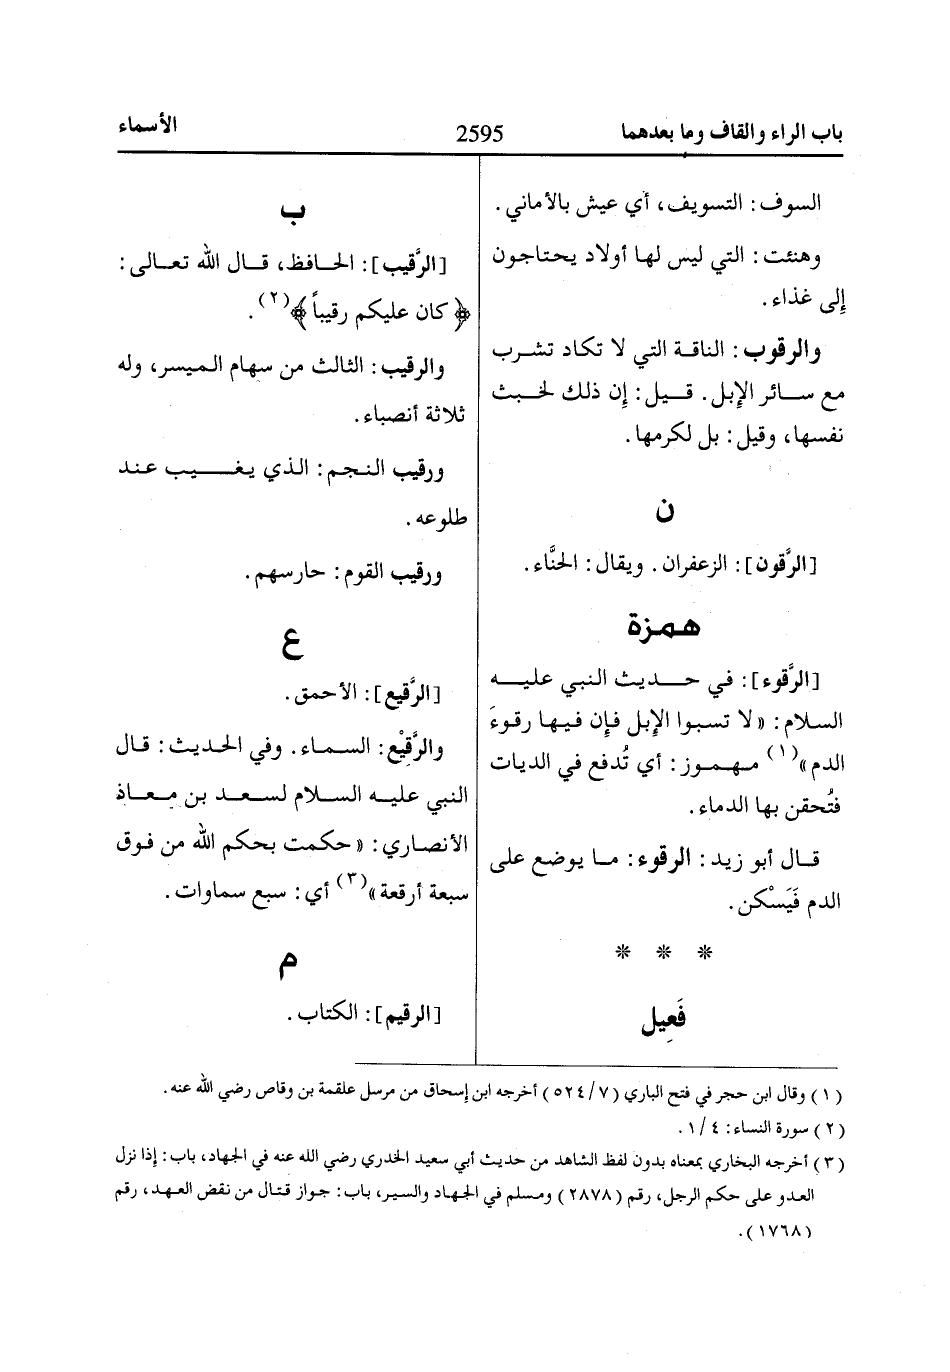 باب الراء والقاف وما بعدهما
2595
الأسماء
السوف: التسويف، أي عيش بالأماني.
وهنئت: التي ليس لها أولاد يحتاجون
إلى غذاء.
والرقوب: الناقة التي لا تكاد تشرب
مع سائر الإبل. قيل: إن ذلك لخبث
نفسها، وقيل: بل لكرمها.
ن
[الرَّقون]: الزعفران. ويقال: الحنَّاء.
همزة
[الرَّقوء]: في حديث النبي عليه
السلام: «لا تسبوا الإبل فإن فيها رقوءَ
الدم»(١) مهموز: أي تُدفع في الديات
فتُحقن بها الدماء.
قال أبو زيد: الرقوء: ما يوضع على
الدم فَيَسْكن.
* * *
فَعِيل
ب
[الرَّقيب]: الحافظ، قال الله تعالى:
﴿كان عليكم رقيباً﴾(٢).
والرقيب: الثالث من سهام الميسر، وله
ثلاثة أنصباء.
ورقيب النجم: الذي يغيب عند
طلوعه.
ورقيب القوم: حارسهم.
ع
[الرَّقيع]: الأحمق.
والرَّقِيْع: السماء. وفي الحديث: قال
النبي عليه السلام لسعد بن معاذ
الأنصاري: «حكمت بحكم الله من فوق
سبعة أرقعة»(٣) أي: سبع سماوات.
م
[الرقيم]: الكتاب.
(١) وقال ابن حجر في فتح الباري (٧/٥٢٤) أخرجه ابن إسحاق من مرسل علقمة بن وقاص رضي الله عنه.
(٢) سورة النساء: ٤/١.
(٣) أخرجه البخاري بمعناه بدون لفظ الشاهد من حديث أبي سعيد الخدري رضي الله عنه في الجهاد، باب: إذا نزل
العدو على حكم الرجل، رقم (٢٨٧٨) ومسلم في الجهاد والسير، باب: جواز قتال من نقض العهد، رقم
(١٧٦٨).